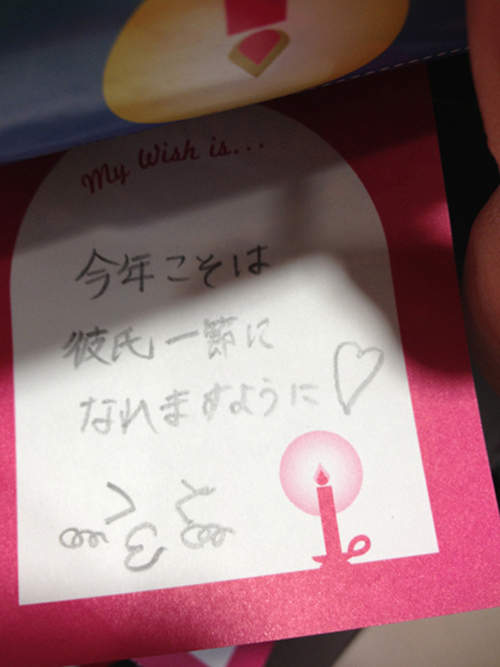 My Wish is...
今年こそは
彼氏一節に
なれますように♡